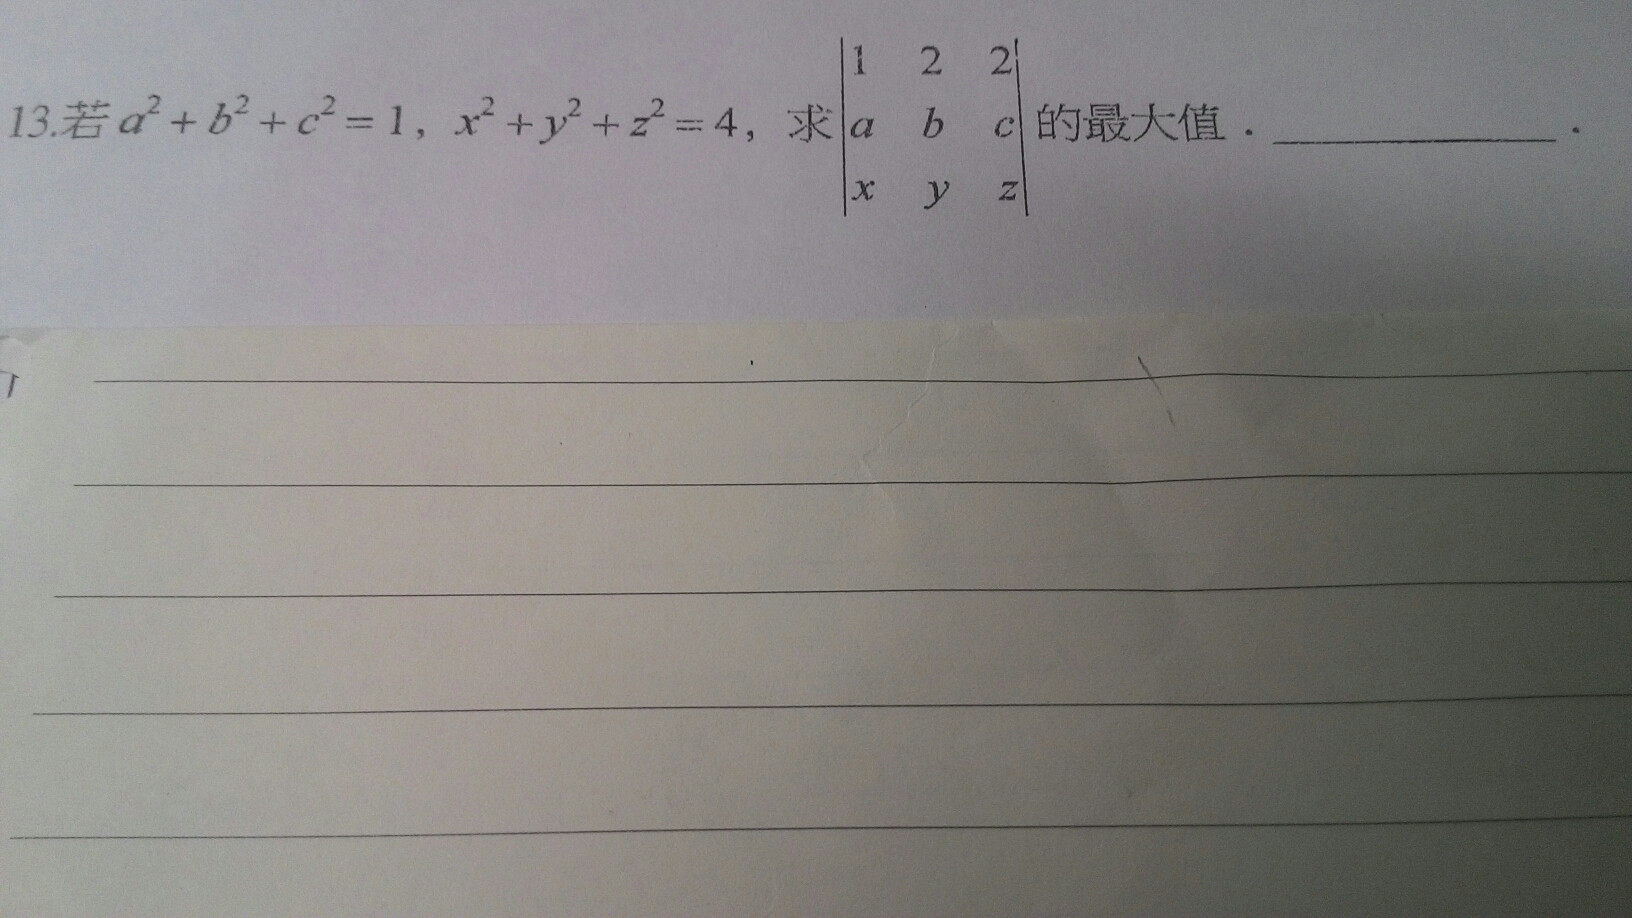 13.若 a²+b²+c²=1，x²+y²+z²=4，求 |1 2 2; a b c; x y z| 的最大值．____________．